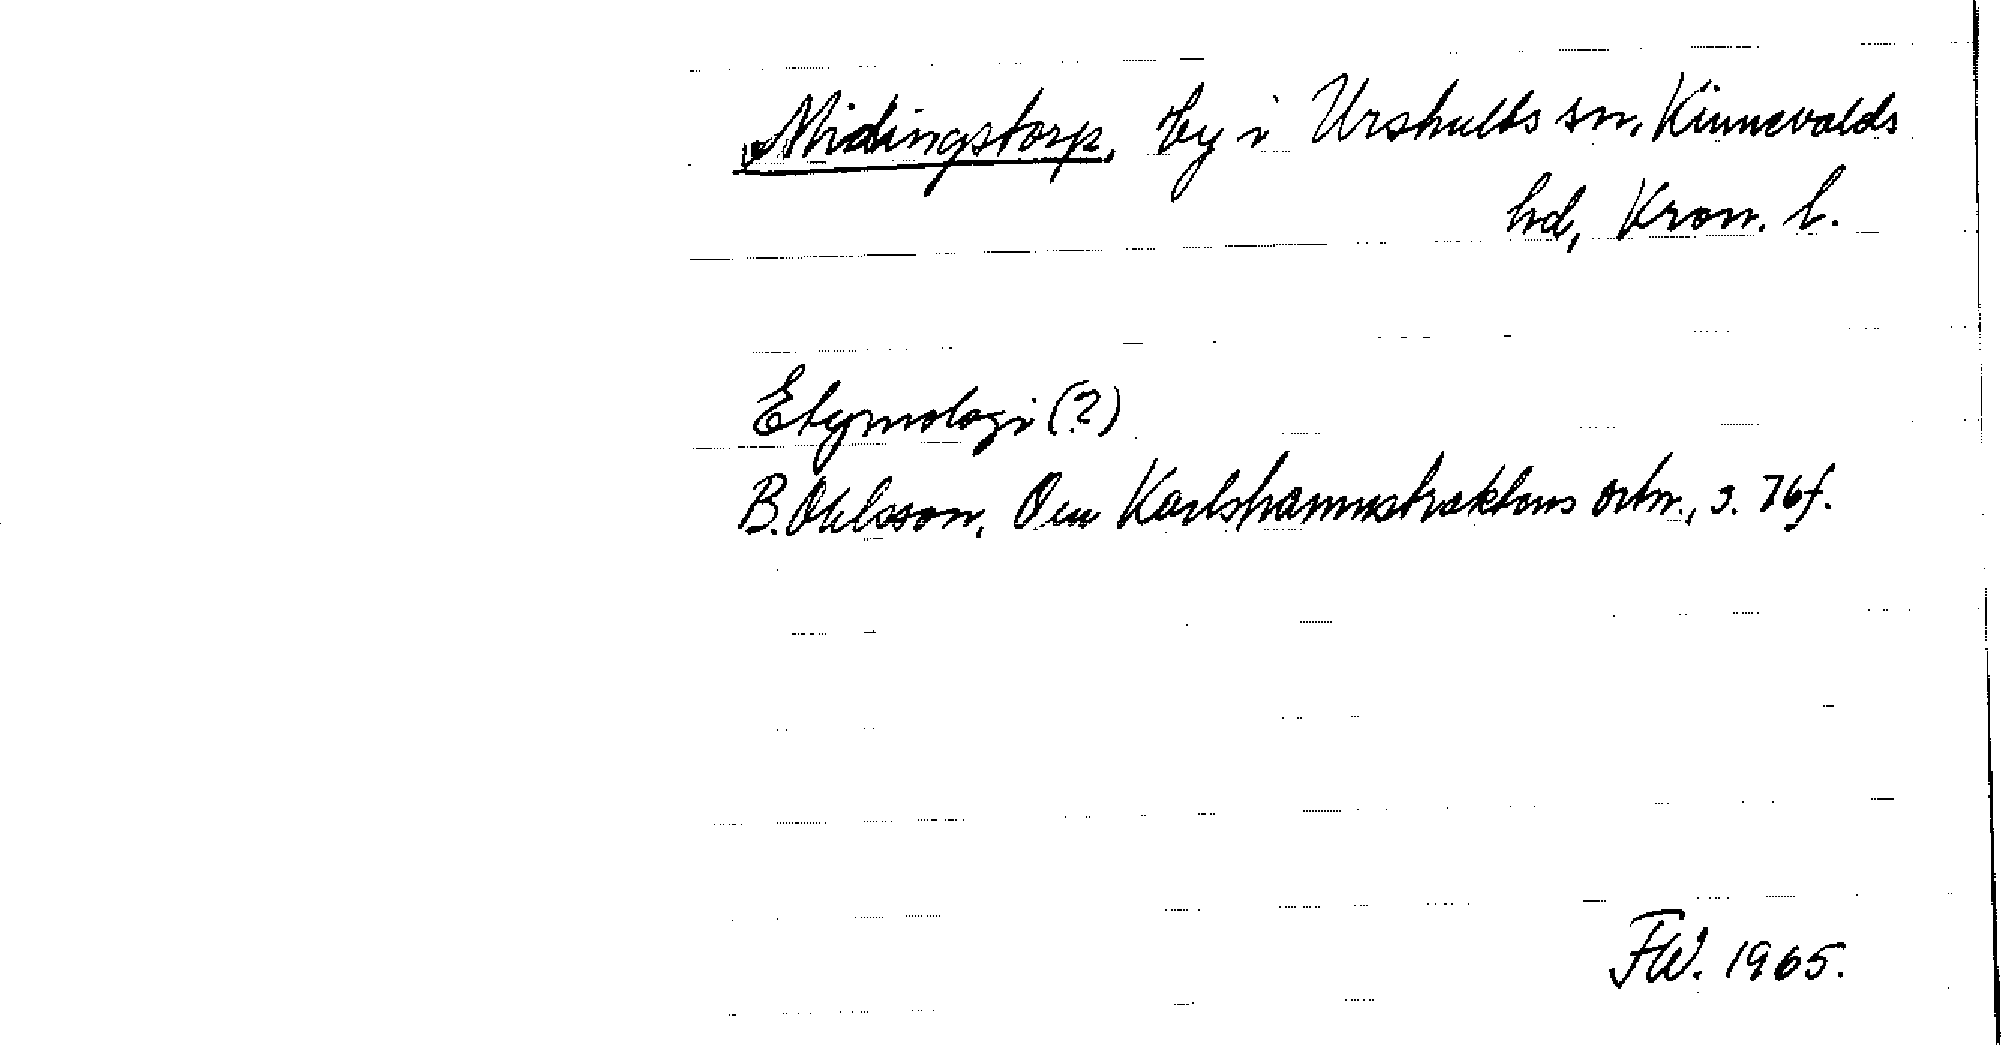 Midingstorp, by i Urshults sn, Kinnevalds
hd, Kron. l.
Etymologi (?)
B. Ohlsson, Om Karlshamnstraktens ortn., s. 76f.
FW. 1965.